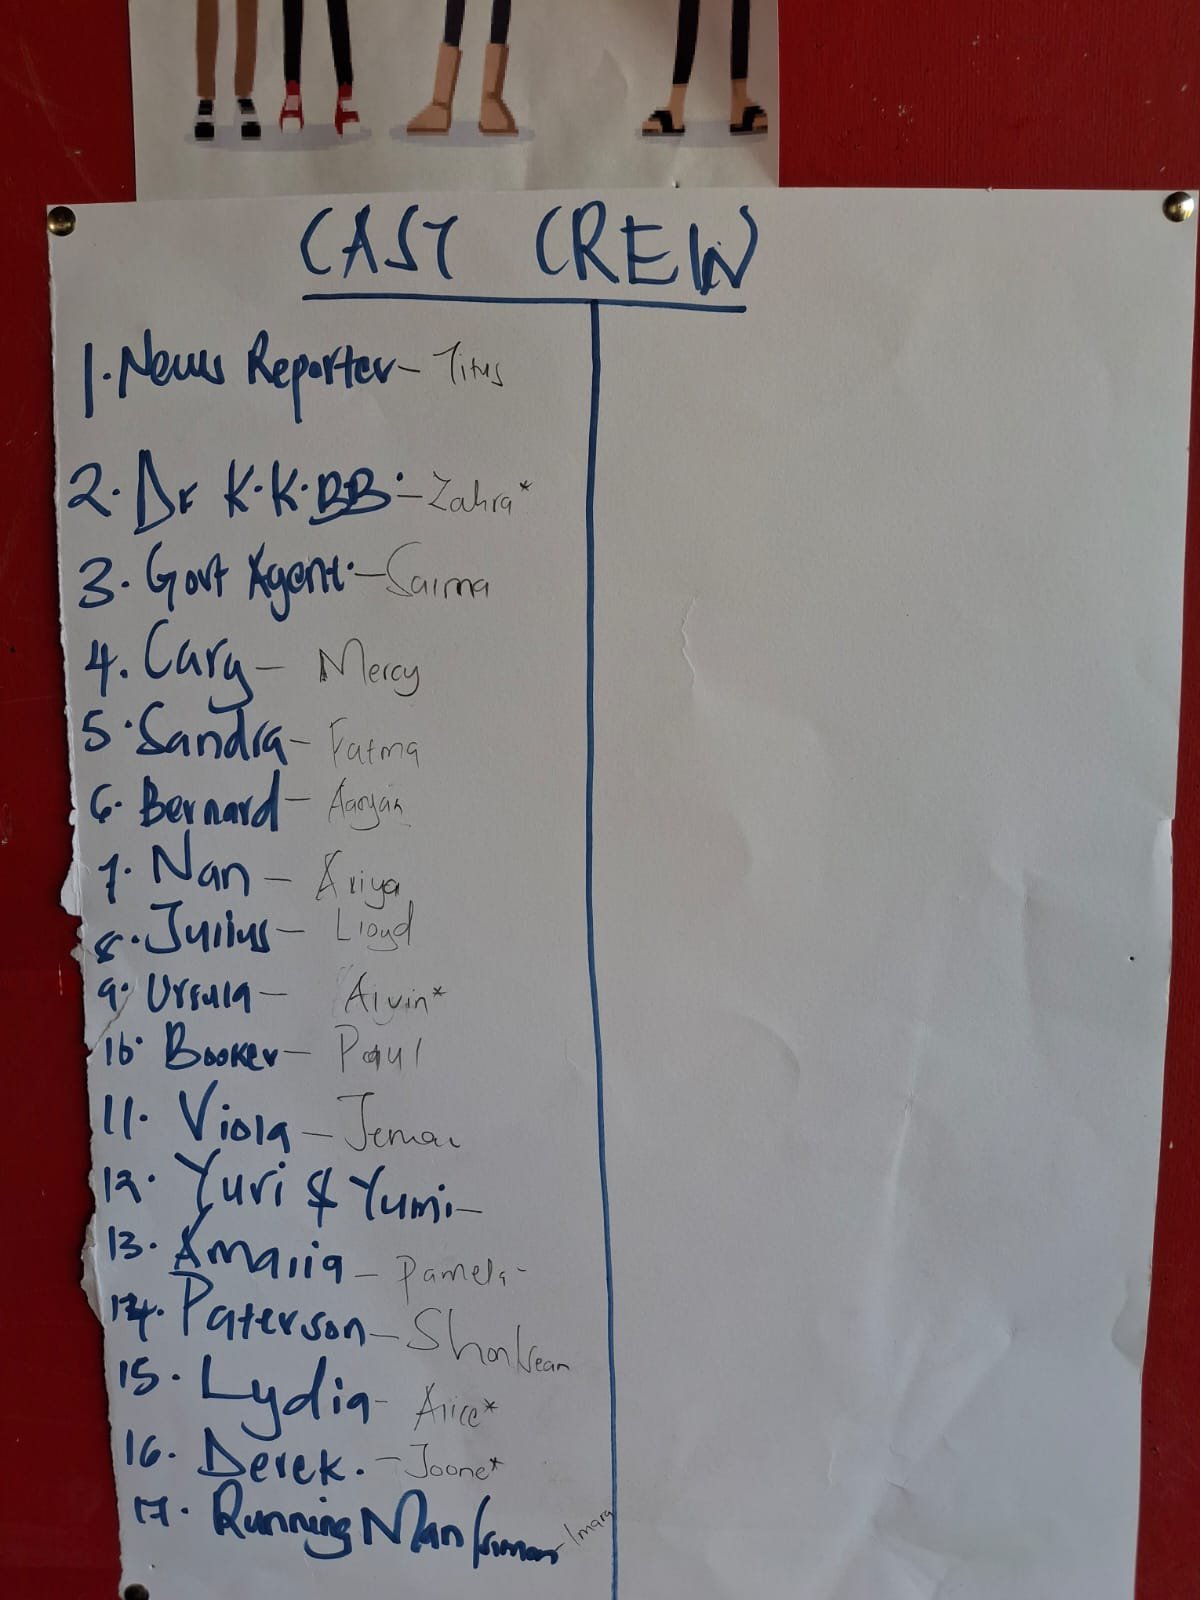 CAST CREW
1. News Reporter - Titus
2. Dr K.K.BB. - Zahra*
3. Govt Agent. - Saima
4. Cary - Mercy
5. Sandra - Fatma
6. Bernard - Aaryan
7. Nan - Ariya
8. Julius - Lloyd
9. Ursula - Alvin*
10. Booker - Paul
11. Viola -
12. Yuri & Yumi -
13. Amalia - Pamela -
14. Paterson -
15. Lydia - Alice*
16. Derek. - Joone*
17. Running Man / - Imara